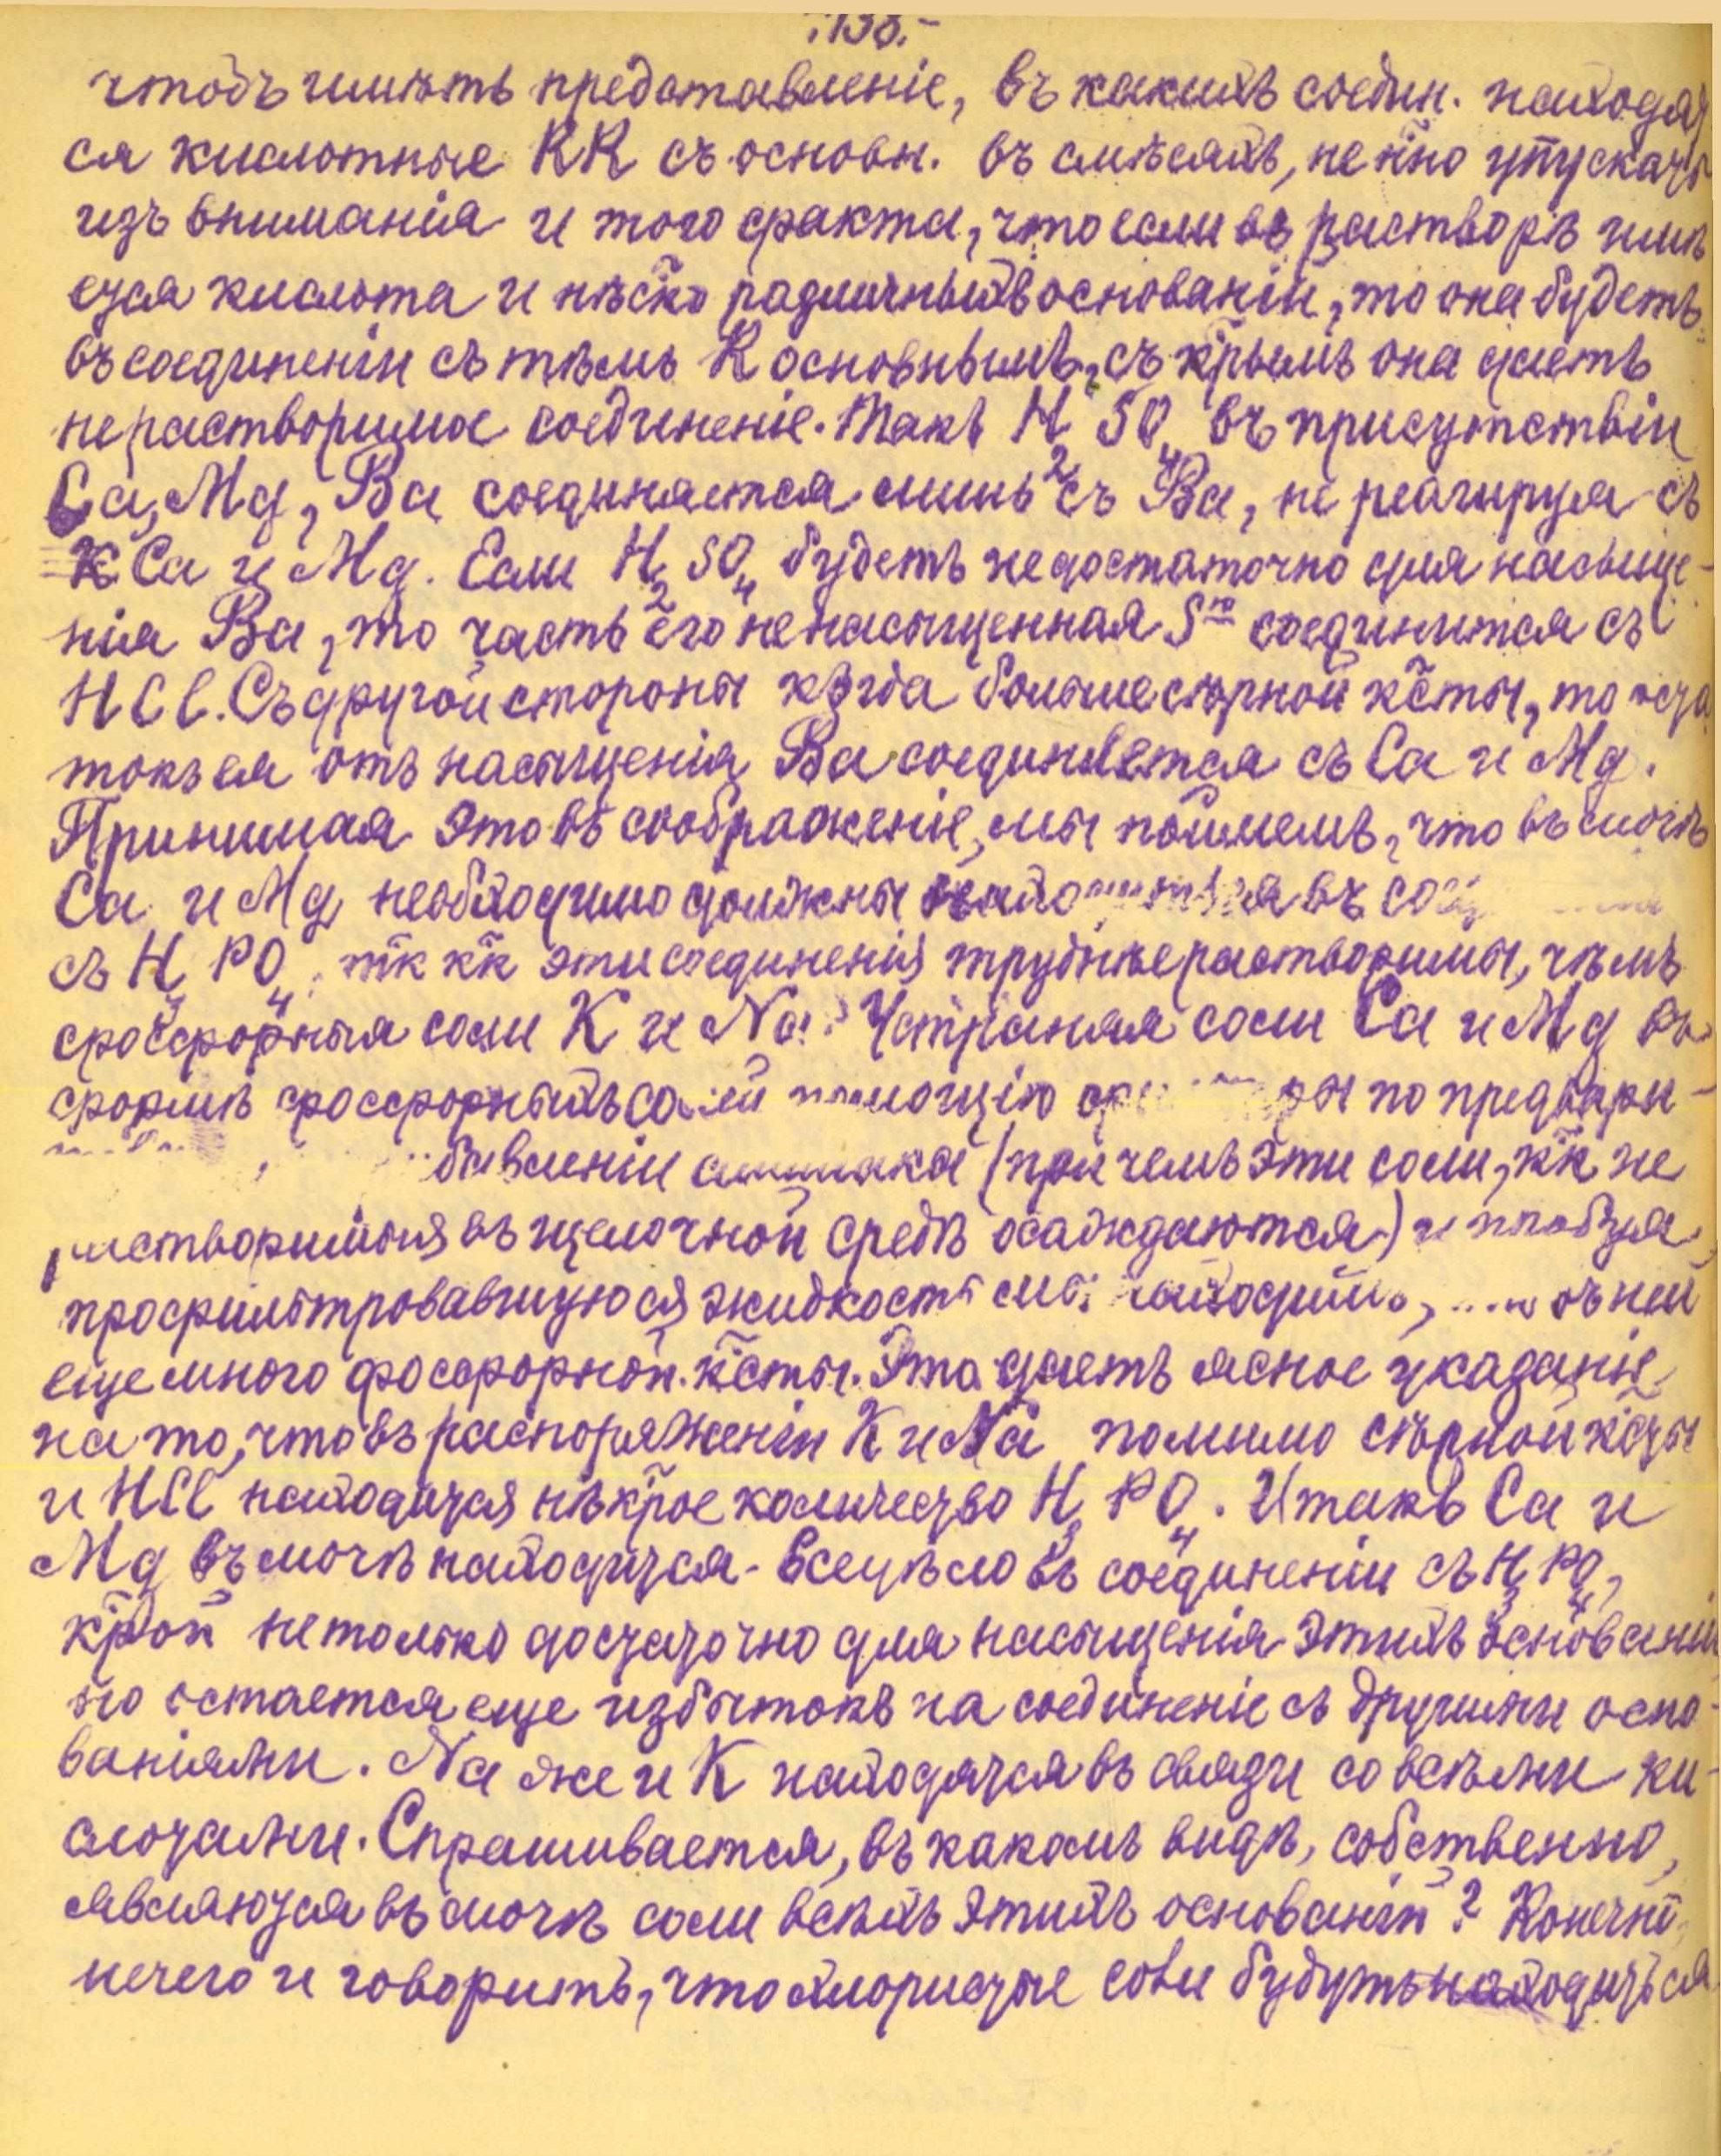 138.-
чтобъ имѣть представленіе, въ какихъ соедин. находят
ся кислотные RR съ основн. въ смѣсяхъ, не нно упускать
изъ вниманія и того факта, что если въ растворѣ имѣ
ется кислота и нѣско различныхъ основаній, то она будетъ
въ соединеніи съ тѣмъ R основнымъ, съ крымъ она даетъ
нерастворимое соединеніе. Такъ H2SO4 въ присутствіи
Ca, Mg, Ba соединяется лишь съ Ba, не реагируя съ
Ca и Mg. Если H2SO4 будетъ недостаточно для насыще-
нія Ba, то часть его ненасыщенная S-ю соединится съ
HCl. Съ другой стороны кгда больше сѣрной ксты, то оста
токъ ея отъ насыщенія Ba соединяется съ Ca и Mg.
Принимая это въ соображеніе, мы поймемъ, что въ мочѣ
Ca и Mg необходимо должны въ
съ H3PO4, тк кк эти соединенія труднѣе растворимы, чѣмъ
фосфорныя соли K и Na. Устраняя соли Ca и Mg въ
формѣ фосфорныхъ солей помощію по предвари-
бавленіи амміака (при чемъ эти соли, кк не
растворимыя въ щелочной средѣ осаждаются) и пробуя
профильтровавшуюся жидкость мы находимъ, въ ней
еще много фосфорной ксты. Это даетъ ясное указаніе
на то, что въ распоряженіи K и Na помимо сѣрной ксты
и HCl находится нѣкрое количество H3PO4. Итакъ Ca и
Mg въ мочѣ находится всецѣло въ соединеніи съ H3PO4,
крой не только достаточно для насыщенія этихъ основаній
но остается еще избытокъ на соединеніе съ другими осно-
ваніями. Na же и K находятся въ связи со всѣми ки-
слотами. Спрашивается, въ какомъ видѣ, собственно,
являются въ мочѣ соли всѣхъ этихъ основаній? Конечно,
нечего и говорить, что хлористые соли будутъ находиться